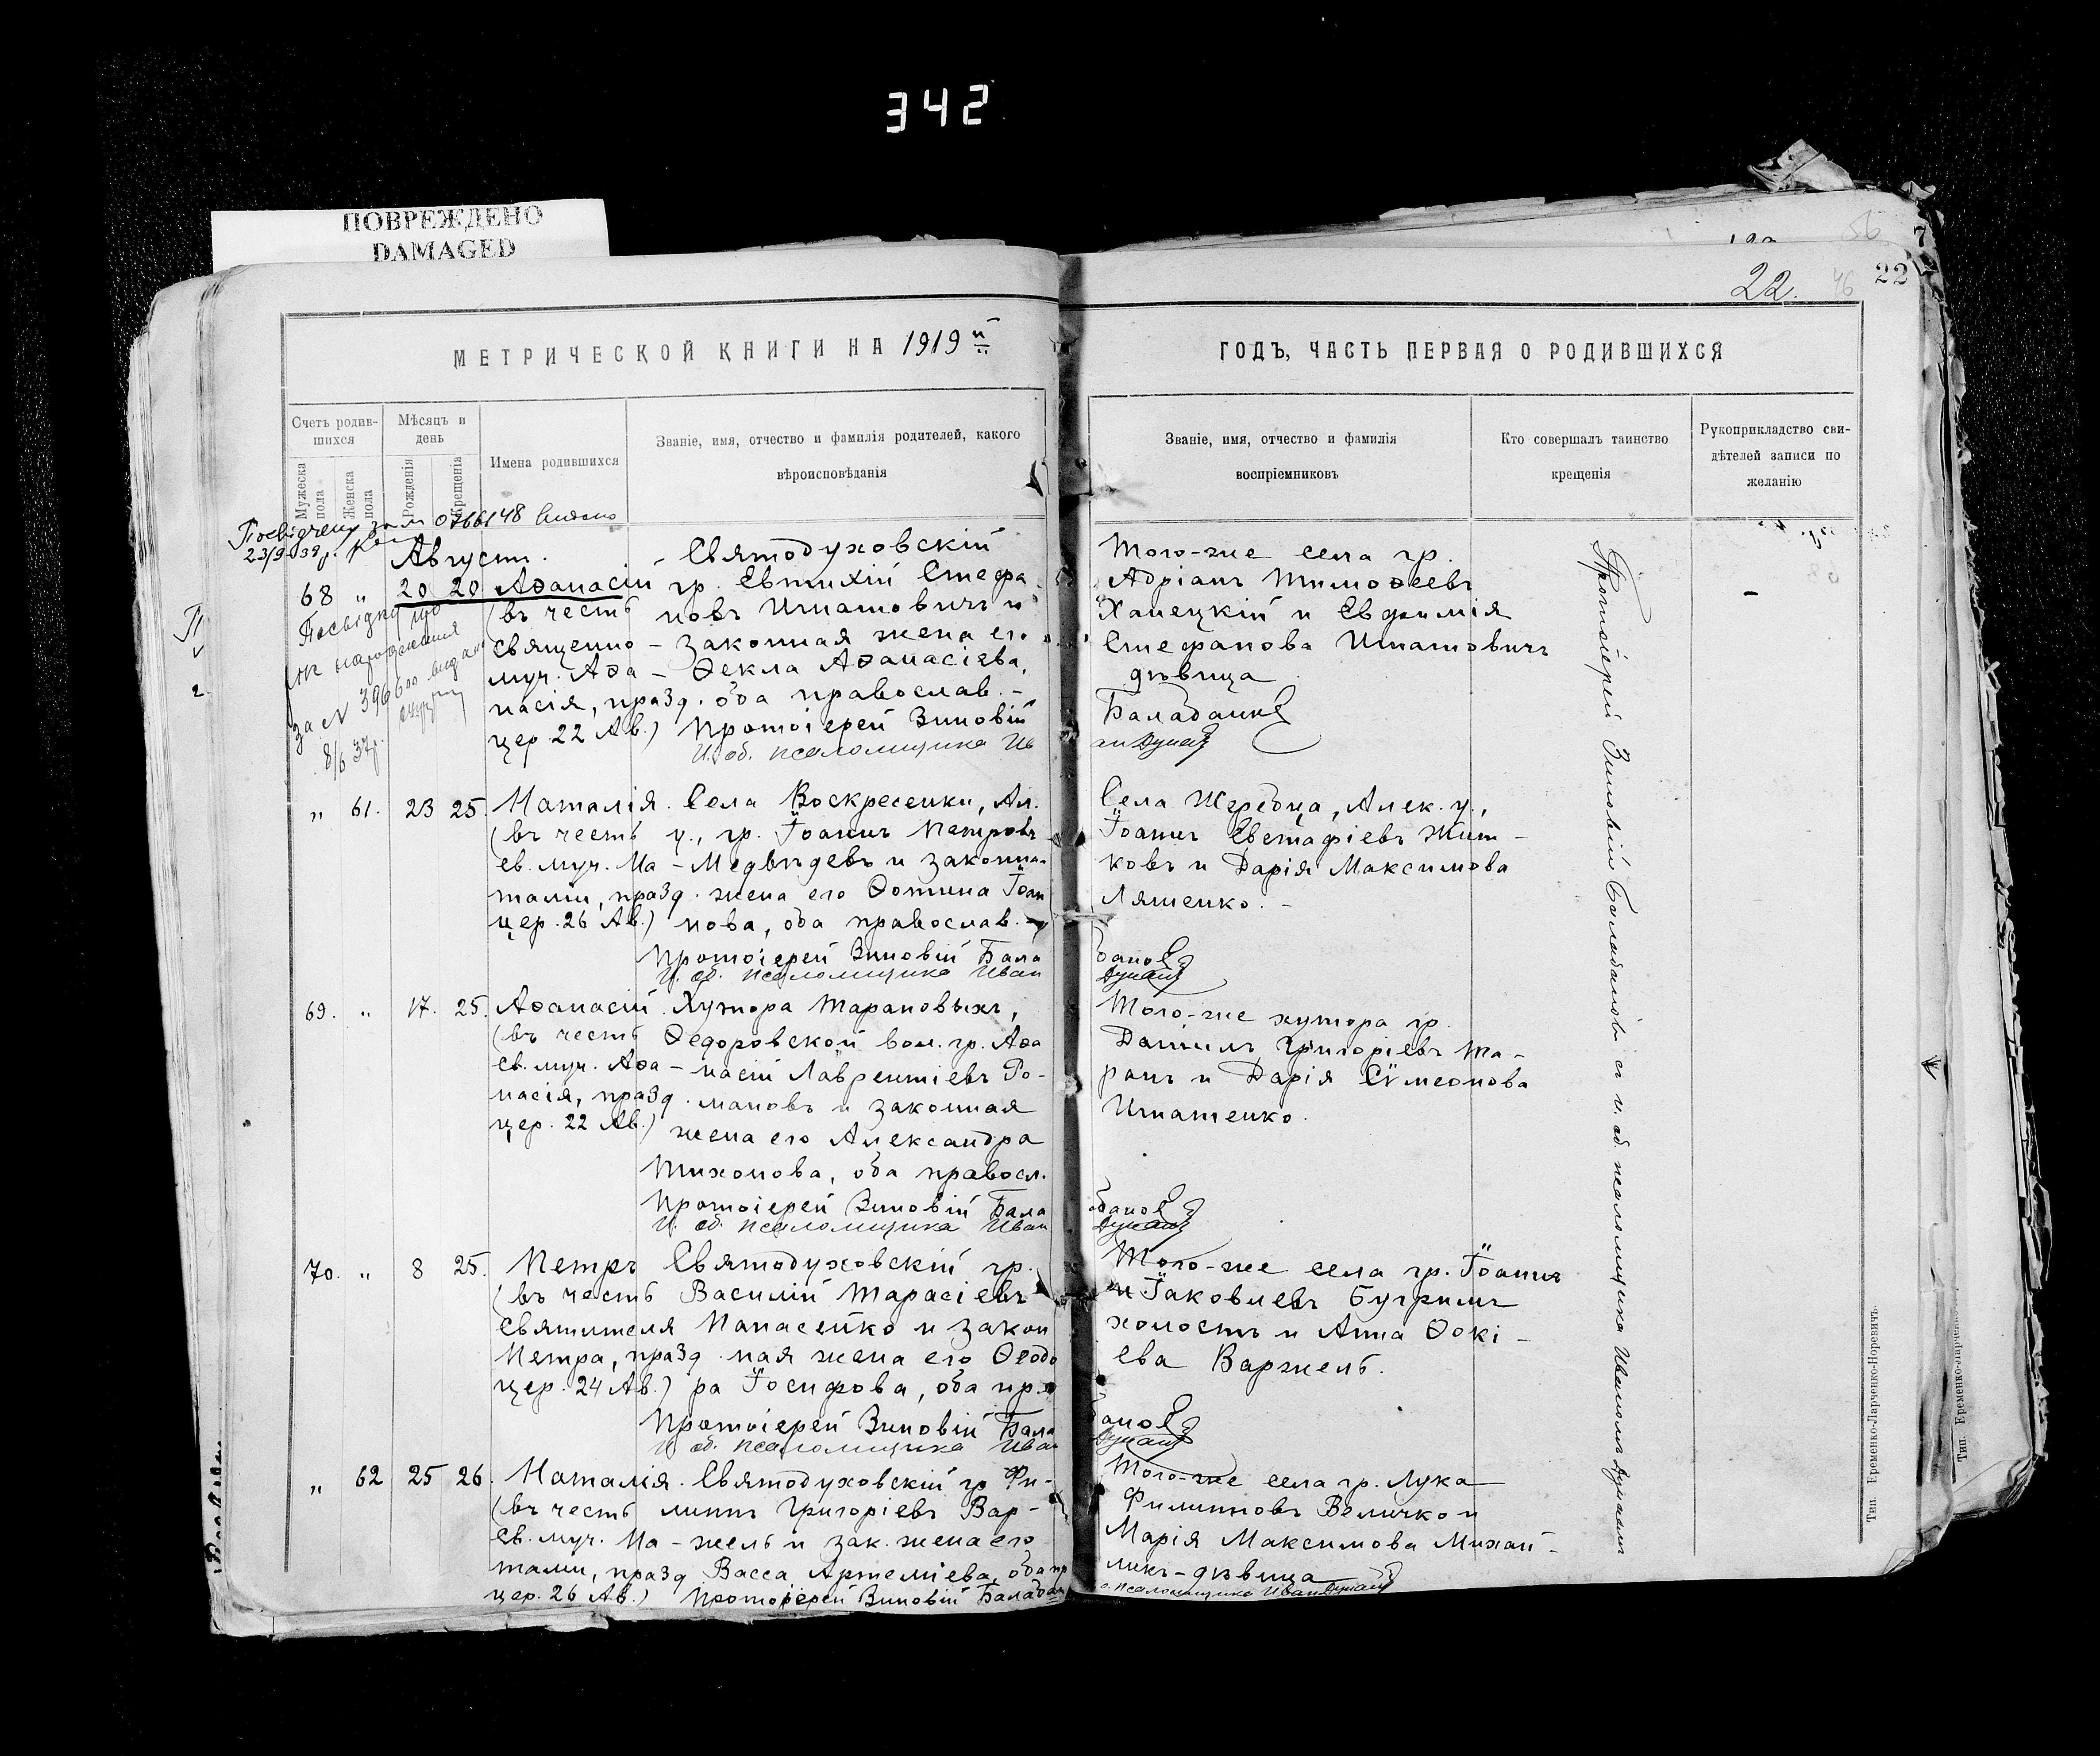 342
ПОВРЕЖДЕНО
DAMAGED
22. 46 22
МЕТРИЧЕСКОЙ КНИГИ НА 1919 й
ГОДЪ, ЧАСТЬ ПЕРВАЯ О РОДИВШИХСЯ
Счетъ родив-
шихся
Мужеска пола
Женска пола
Мѣсяцъ и
день
Рожденія
Крещенія
Имена родившихся
Званіе, имя, отчество и фамилія родителей, какого
вѣроисповѣданія
Званіе, имя, отчество и фамилія
воспріемниковъ
Кто совершалъ таинство
крещенія
Рукоприкладство сви-
дѣтелей записи по
желанію
за № 0766148
23/9-39р.
Август.
68 " 20 20 Аѳанасій
(въ честь
священно-
муч. Аѳа-
насія, празд.
цер. 22 Ав.)
за № 396600 видано
8/6 37р.
- Святодуховскій
гр. Евтихій Стефа
новъ Игнатовичъ и
законная жена его
Ѳекла Аѳанасіева,
оба православ. -
Протоіерей Зиновій
И. об. псаломщика Ив
Того-же села гр.
Адріанъ Тимоѳеевъ
Ханецкій и Евфимія
Стефанова Игнатовичъ
дѣвица
Балабанов
ан Дунай
" 61. 23 25. Наталія.
(въ честь
св. муч. На-
таліи, празд.
цер. 26 Ав.)
Села Воскресенки, Ал.
у., гр. Іоаннъ Петровъ
Медвѣдевъ и законна-
жена его Фотина Іоан
нова, оба православ. -
Протоіерей Зиновій Бала
И. об. псаломщика Иван
Села Жеребца, Алек. у.,
Іоаннъ Евстафіевъ Жит-
ковъ и Дарія Максимова
Ляшенко. -
банов
Дунай
69. " 17. 25. Аѳанасій.
(въ честь
Св. муч. Аѳа-
насія, празд.
цер. 22 Ав.)
Хутора Тарановыхъ,
Ѳедоровской вол. гр. Аѳа
насій Лаврентіевъ Ро-
мановъ и законная
жена его Александра
Тихонова, оба правосл.
Протоіерей Зиновій Бала
И. об. псаломщика Иван
Того-же хутора гр.
Даніилъ Григоріевъ Та-
ранъ и Дарія Сѵмеонова
Игнатенко.
банов
Дунай
70. " 8 25. Петръ
(въ честь
Святителя
Петра, празд.
цер. 24 Ав.)
Святодуховскій гр.
Василій Тарасіевъ
Панасейко и закон
ная жена его Ѳеодо
ра Іосифова, оба пр.
Протоіерей Зиновій Бала
И. об. псаломщика Иван
Того-же села гр. Іоаннъ
Іаковлевъ Бугримъ
холостъ и Анна Фокі-
ева Варжель.
банов
Дунай
" 62 25 26. Наталія.
(въ честь
св. муч. На-
таліи, празд
цер. 26 Ав.)
Святодуховскій гр Фи-
липпъ Григоріевъ Вар-
жель и зак. жена его
Васса Артеміева, оба пр
Протоіерей Зиновій Балабан
Того-же села гр. Лука
Филипповъ Величко и
Марія Максимова Михай-
ликъ-дѣвица
о. псаломщика Иван Дунай
Протоіерей Зиновій Балабановъ съ и. об. псаломщика Иваномъ Дунаемъ
Тип. Еременко-Ларченко-Норевичъ.